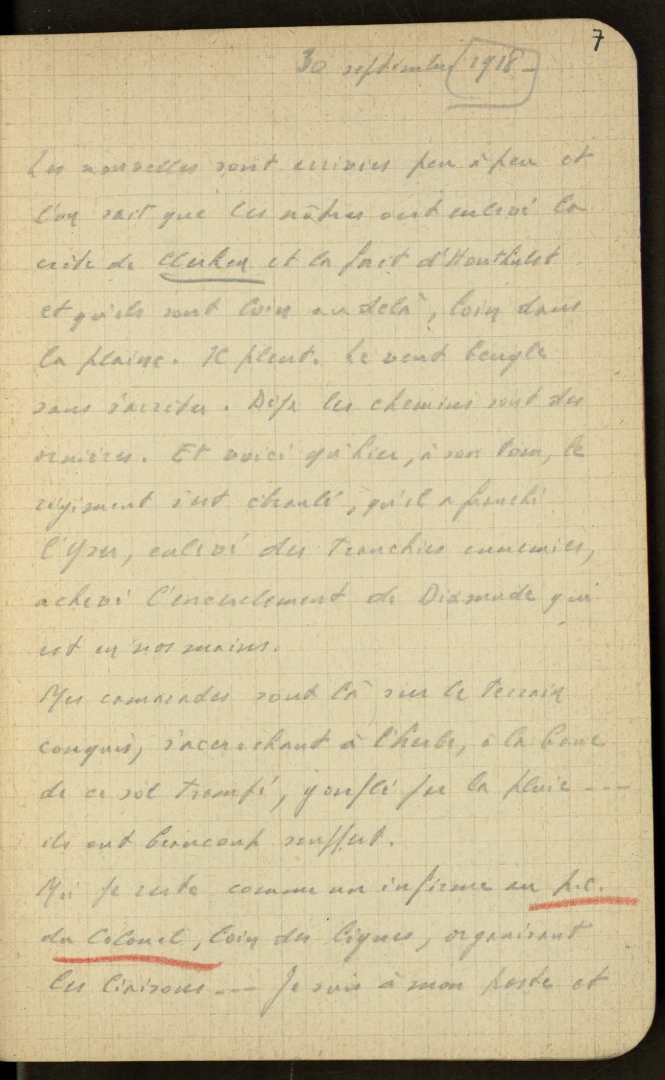 7
30 septembre 1918 -
Les nouvelles sont arrivées peu à peu et
l'on sait que les nôtres ont enlevé la
crête de Clerken et la forêt d'Houthulst
et qu'ils sont loin au delà, loin dans
la plaine. Il pleut. Le vent beugle
sans s'arrêter. Déjà les chemins sont des
ornières. Et voici qu'hier, à son tour, le
régiment s'est ébranlé, qu'il a franchi
l'Yser, enlevé des tranchées ennemies,
achevé l'encerclement de Dixmude qui
est en nos mains.
Mes camarades sont là sur le terrain
conquis, s'accrochant à l'herbe, à la boue
de ce sol trempé, gonflé par la pluie ---
ils ont beaucoup souffert.
Moi je reste comme un infirme au p.c.
du Colonel, loin des lignes, organisant
les liaisons --- Je suis à mon poste et